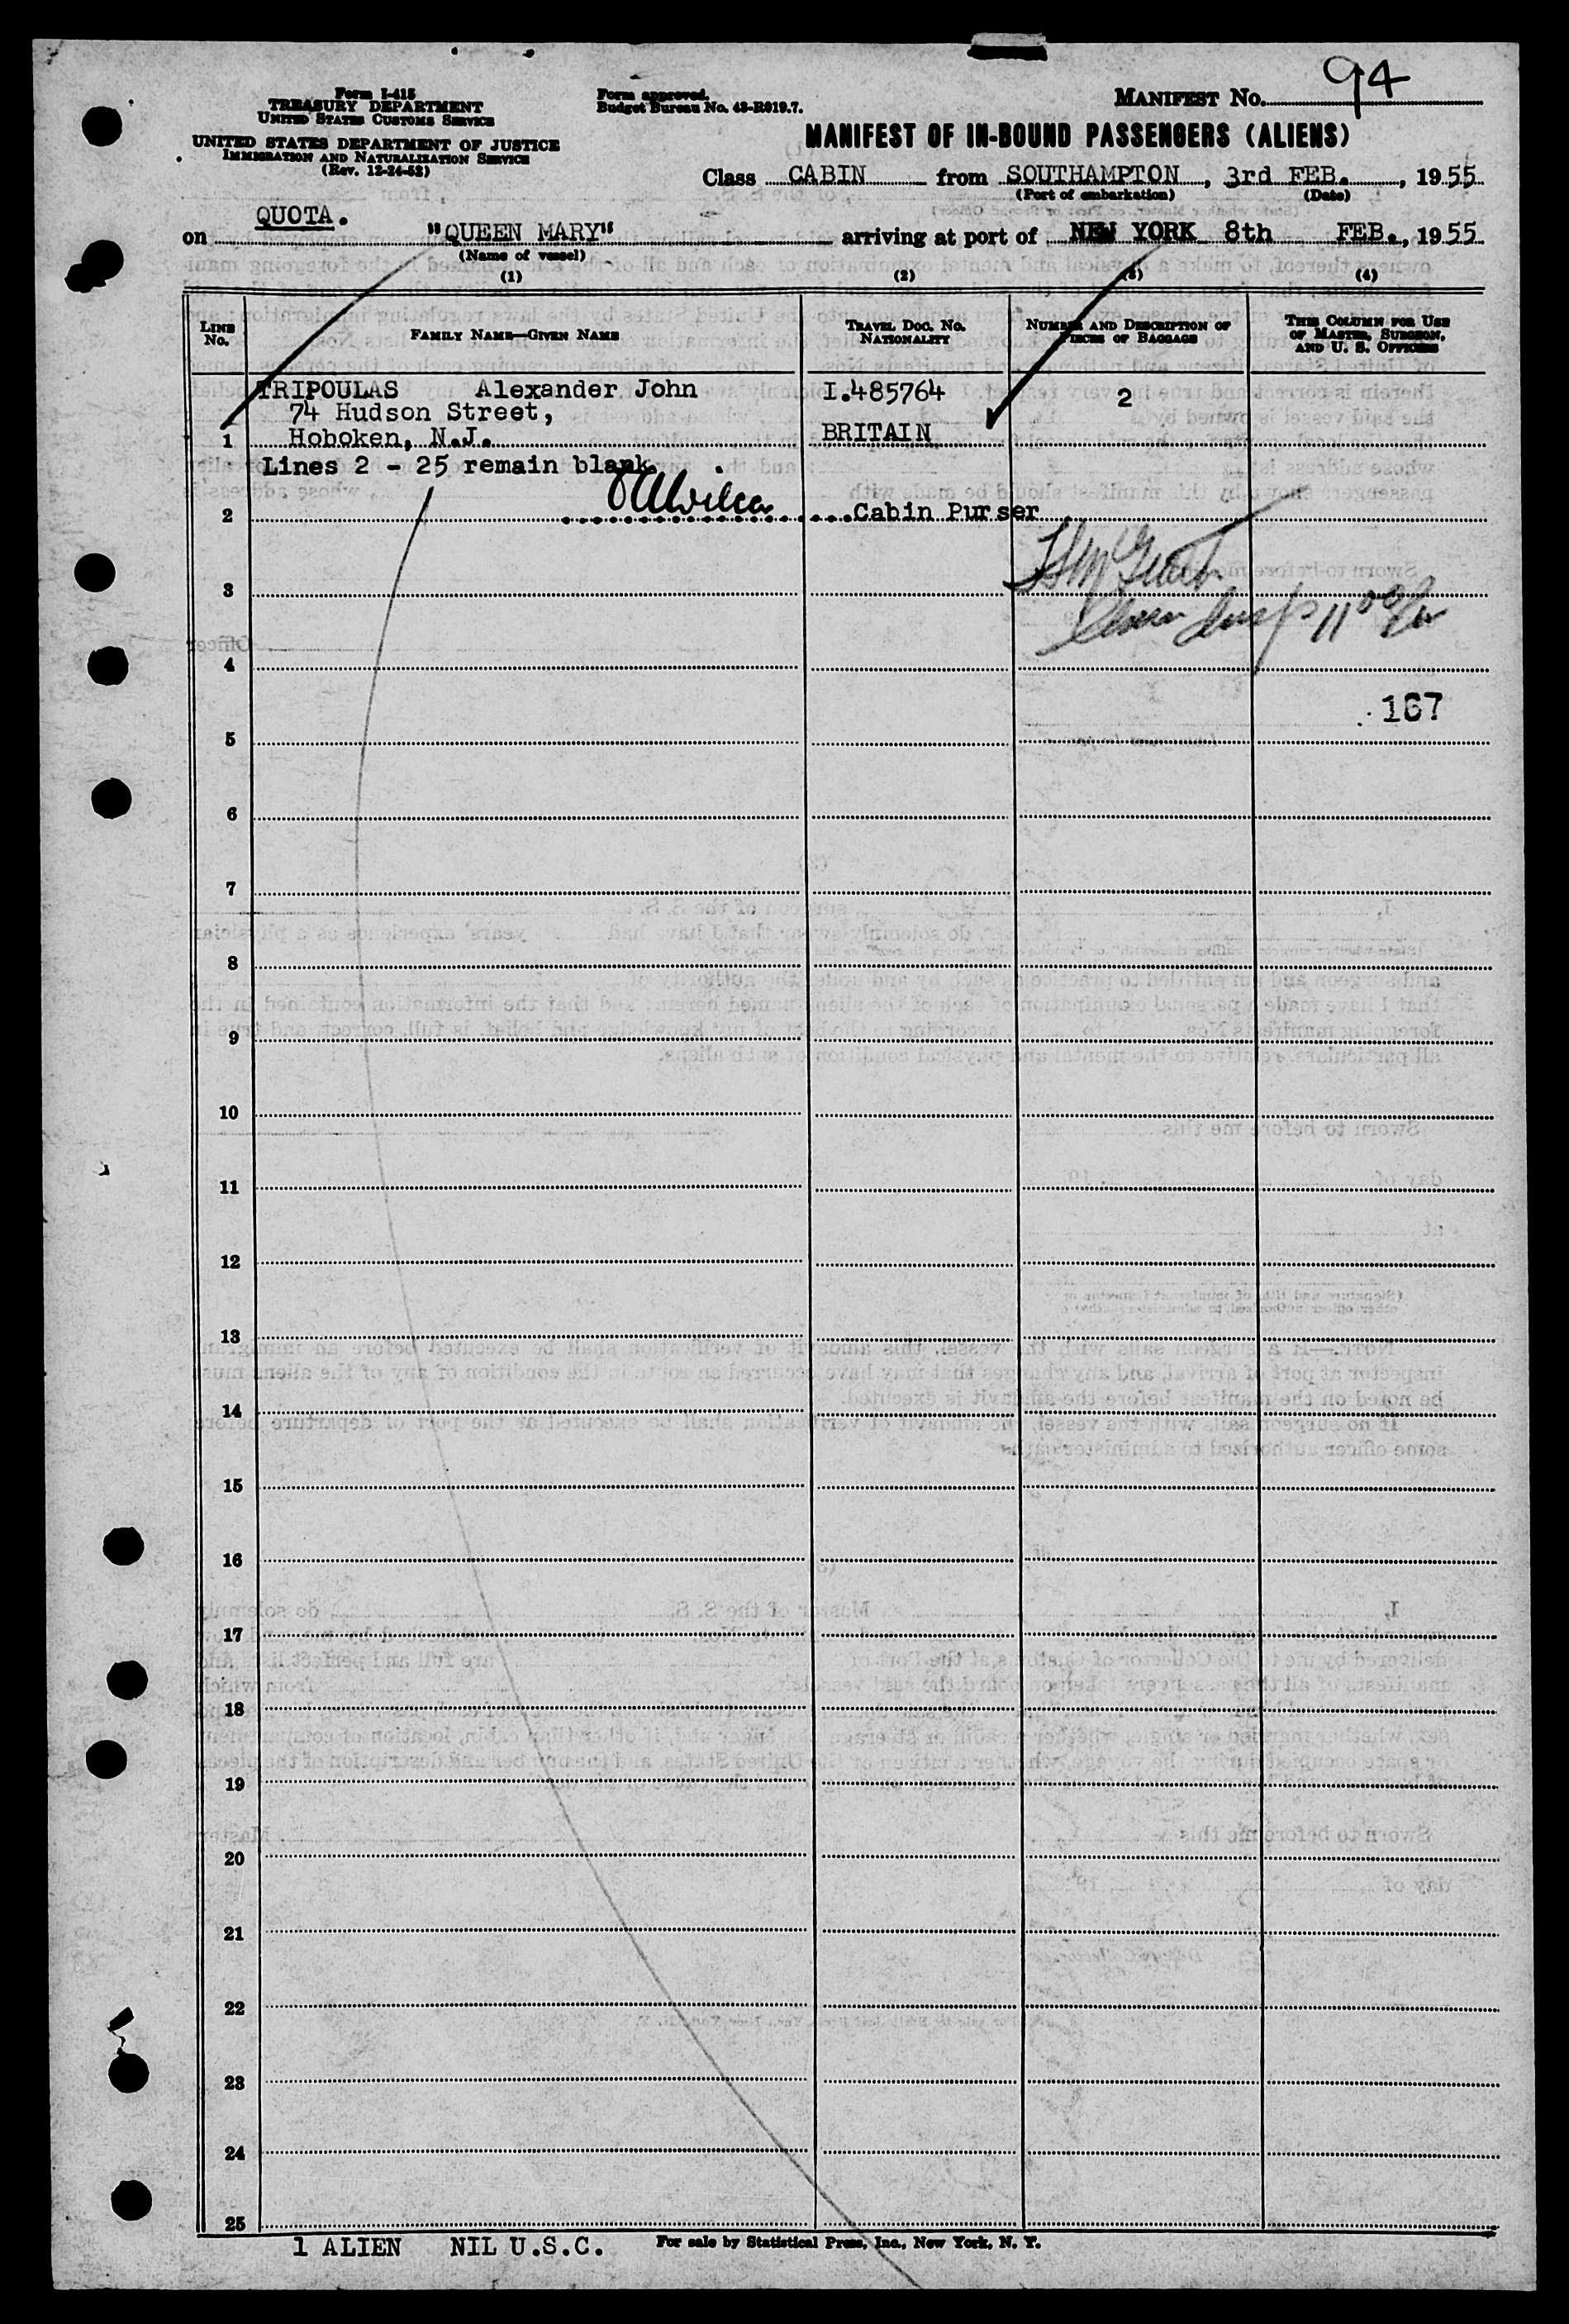 94
Form I-415
TREASURY DEPARTMENT
UNITED STATES CUSTOMS SERVICE
UNITED STATES DEPARTMENT OF JUSTICE
IMMIGRATION AND NATURALIZATION SERVICE
(Rev. 12-24-52)
Form approved.
Budget Bureau No. 43-R019.7.
MANIFEST NO.
MANIFEST OF IN-BOUND PASSENGERS (ALIENS)
Class CABIN from SOUTHAMPTON, 3rd FEB., 1955
(Port of embarkation) (Date)
QUOTA.
on "QUEEN MARY" arriving at port of NEW YORK 8th FEB., 1955
(Name of vessel)
(1) (2) (3) (4)
LINE NO.
FAMILY NAME—GIVEN NAME
TRAVEL DOC. NO. NATIONALITY
NUMBER AND DESCRIPTION OF PIECES OF BAGGAGE
THIS COLUMN FOR USE OF MASTER, SURGEON, AND U. S. OFFICERS
TRIPOULAS Alexander John I.485764 2
74 Hudson Street,
1 Hoboken, N.J. BRITAIN
Lines 2 - 25 remain blank.
2 Cabin Purser
3
4
167
5
6
7
8
9
10
11
12
13
14
15
16
17
18
19
20
21
22
23
24
25
1 ALIEN NIL U.S.C. For sale by Statistical Press, Inc., New York, N. Y.